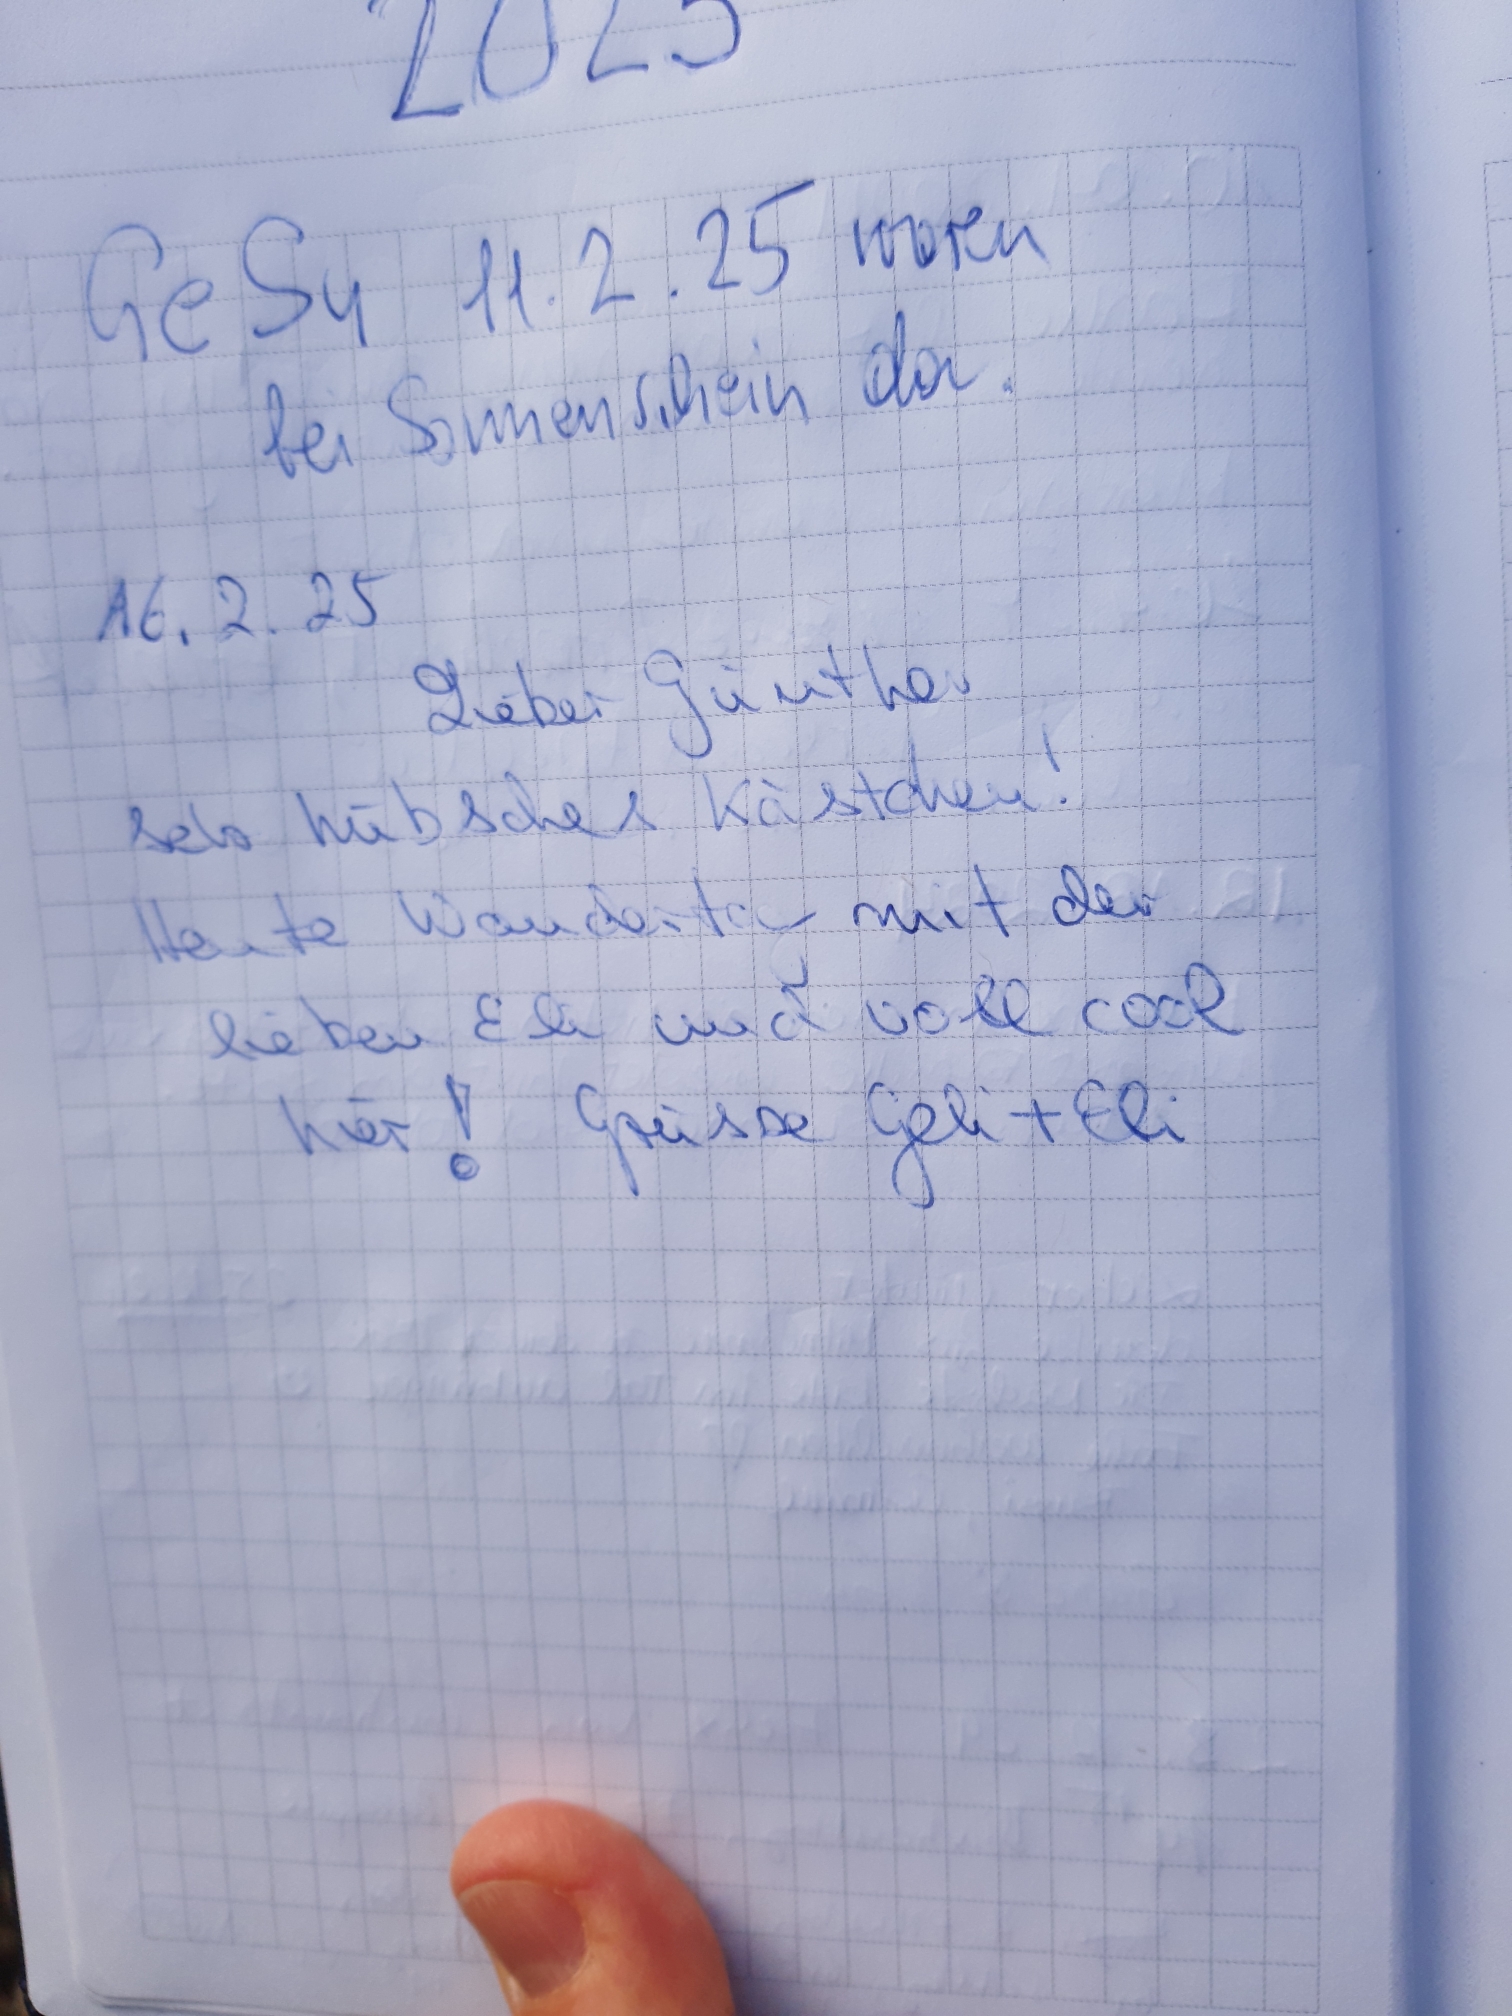 2025
GeSy 11.2.25 waren
bei Sonnenschein da.
16.2.25
Lieber Günther
sehr hübsches Kästchen!
Heute Wandertag mit der
lieben Eli und voll cool
hier! Grüsse Geli + Eli